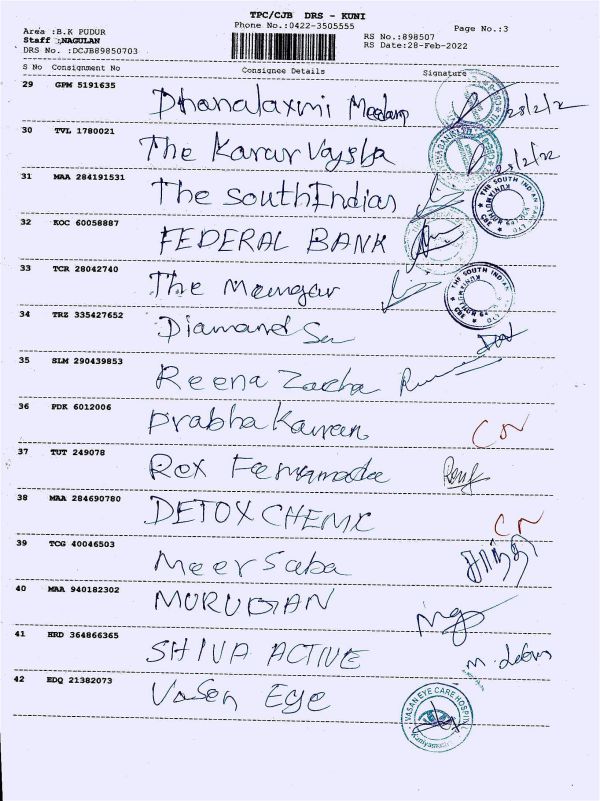 TPC/CJB DRS - KUNI
Phone No.:0422-3505555
Page No.:3
Area :B.K PUDUR
Staff :NAGULAN
DRS No. :DCJB89850703
RS No.:898507
RS Date:28-Feb-2022
S No Consignment No Consignee Details Signature
29 GPM 5191635 Dhanalaxmi 28/2/2
30 TVL 1780021 The Karur Vaysba 28/2/22
31 MAA 284191531 The southIndian
32 KOC 60058887 FEDERAL BANK
33 TCR 28042740 The
34 TRZ 335427652 Diamand Su
35 SLM 290439853 Reena Zacha
36 PDK 6012006 Prabha Kawran
37 TUT 249078 Rox
38 MAA 284690780 DETOX CHEMIC
39 TCG 40046503 Meer Saba
40 MAA 940182302 MURUGIAN
41 HRD 364866365 SHIVA ACTIVE
42 EDQ 21382073 Vasen Eye
THE SOUTH INDIAN
THE SOUTH INDIAN
VASAN EYE CARE HOSPITAL